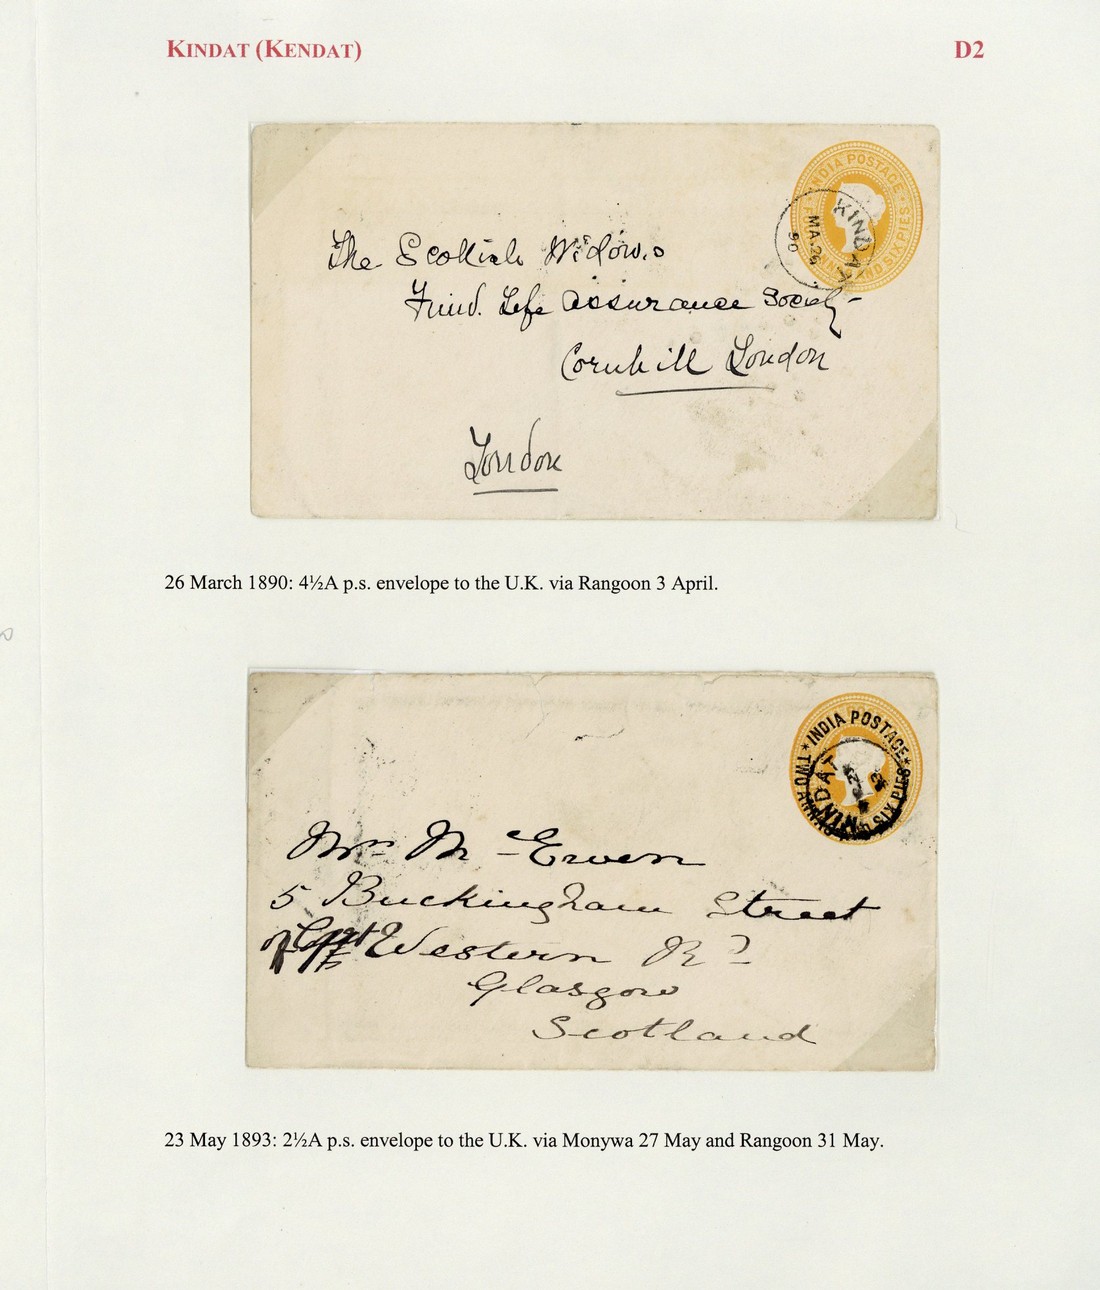 KINDAT (KENDAT)
D2
INDIA POSTAGE
AND SIX PIES
KINDAT
MA.26
90
The Scottish Widows
Fund. Life Assurance Society
Cornhill London
London
26 March 1890: 4½A p.s. envelope to the U.K. via Rangoon 3 April.
INDIA POSTAGE
TWO ANNAS SIX PIES
KINDAT
5 Buckingham Street
Western Rd
Glasgow
Scotland
23 May 1893: 2½A p.s. envelope to the U.K. via Monywa 27 May and Rangoon 31 May.